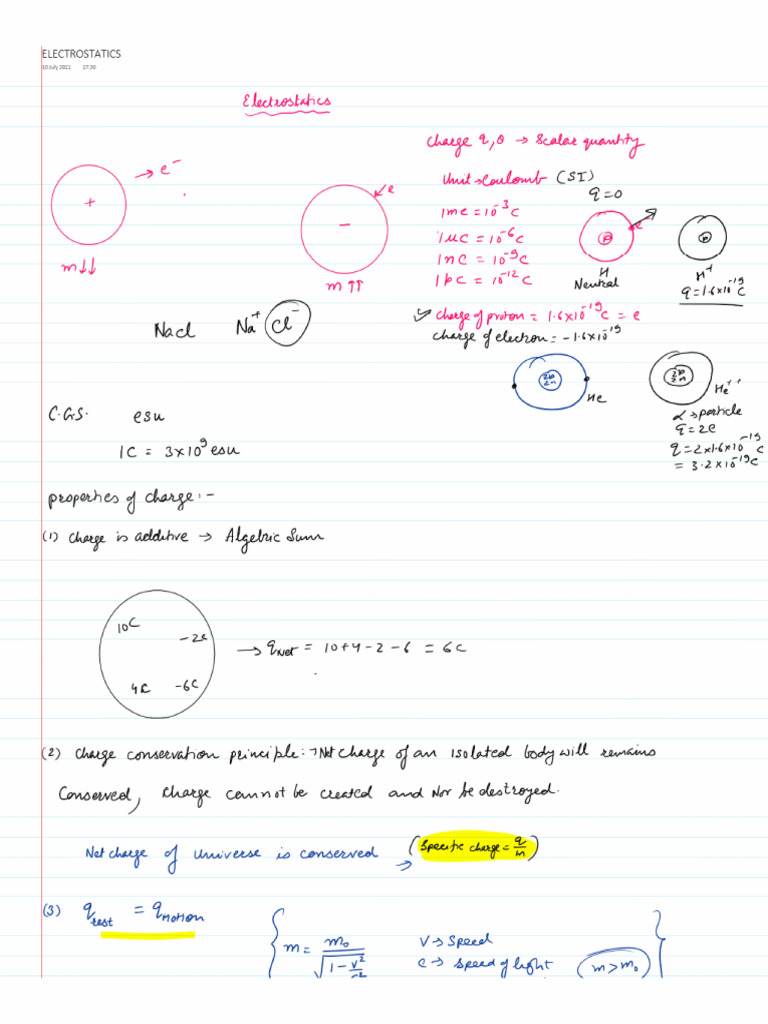 ELECTROSTATICS
10 July 2021 17:30
Electrostatics
Charge q, Q → Scalar quantity
Unit → Coulomb (SI)
q = 0
1mc = 10⁻³ C
1μC = 10⁻⁶ C
1nC = 10⁻⁹ C
1pC = 10⁻¹² C
→ e⁻
+
m↓↓
e
−
m↑↑
e
p
H
Neutral
p
H⁺
q = 1.6×10⁻¹⁹ C
Nacl Na⁺ Cl⁻
✓ Charge of proton = 1.6×10⁻¹⁹ C = e
Charge of electron = −1.6×10⁻¹⁹
2p
2n
He
He⁺⁺
α → particle
q = 2e
q = 2×1.6×10⁻¹⁹ C
= 3.2×10⁻¹⁹ C
C.G.S. esu
1C = 3×10⁹ esu
properties of charge :-
(1) Charge is additive → Algebric Sum
10C
-2C
4C -6C
→ qNet = 10+4-2-6 = 6C
(2) Charge conservation principle :→ Net Charge of an isolated body will remains
Conserved, Charge cannot be created and Nor be destroyed.
Net charge of Universe is conserved → (Specific charge = q/m)
(3) qrest = qmotion
{ m = m₀/√(1 − v²/c²) V → Speed
C → Speed of light (m > m₀) }